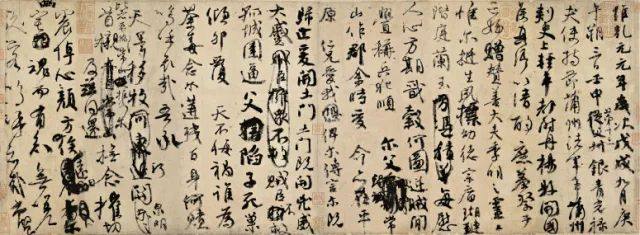 維乾元元年歲次戊戌九月庚
午朔三日壬申第十三叔銀青光祿
夫使持節蒲州諸軍事蒲州
刺史上輕車都尉丹楊縣開國
侯真卿以清酌庶羞祭于
亡姪贈贊善大夫季明之靈曰
惟爾挺生夙標幼德宗廟瑚璉
階庭蘭玉每慰
人心方期戩穀何圖逆賊閒
釁稱兵犯順
爾父竭誠常
山作郡余時受命亦在平
原仁兄愛我俾爾傳言爾既
歸止爰開土門土門既開凶威
大蹙賊臣不救
孤城圍逼父陷子死巢
傾卵覆天不悔禍誰為
荼毒念爾遘殘百身何贖
嗚呼哀哉吾承
天澤移牧河關泉明
首櫬及茲同還撫念摧切
震悼心顏方俟
幽宅魂而有知無嗟
久客嗚呼哀哉尚饗